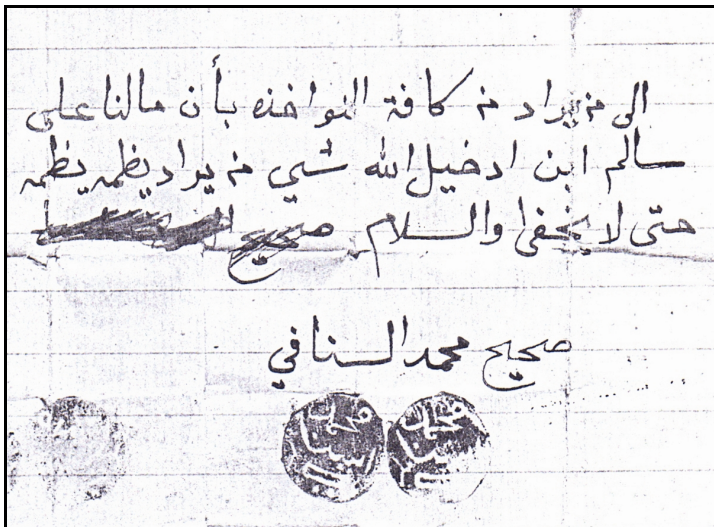 الى من يراد من كافة النواخذه بأن مالنا على
سالم ابن ادخيل الله شي من يراد يظمه يظمه
حتى لا يخفا والسلام صحيح
صحيح محمد السنافي
محمد
محمد